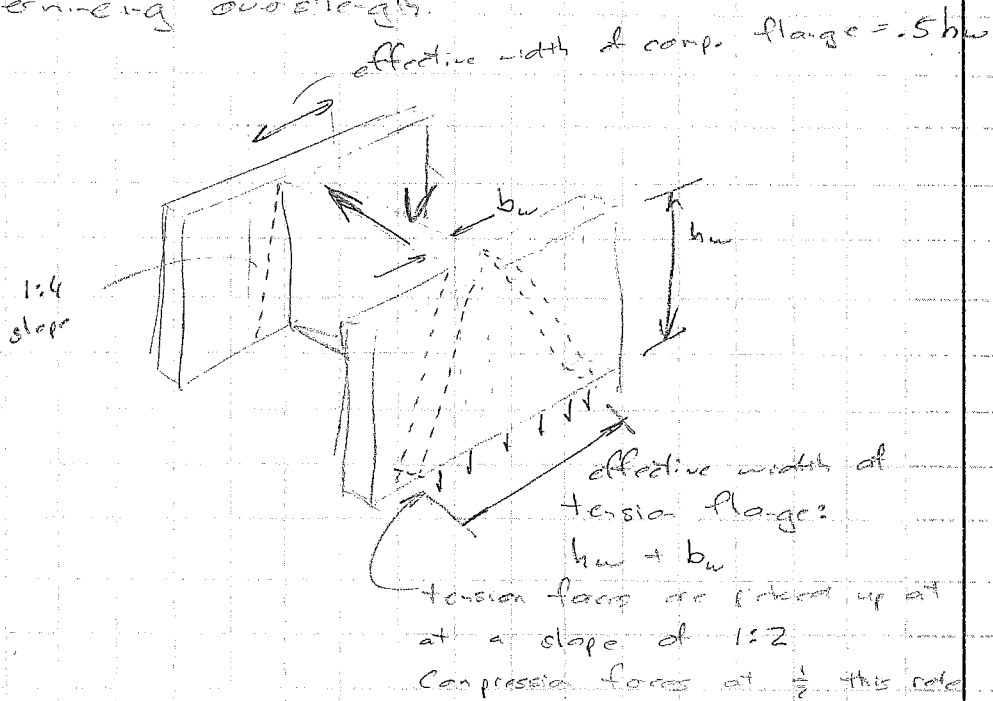 effective width of comp. flange = .5 hw
bw
hw
1:4
slope
effective width of
tension flange:
hw + bw
tension forces are picked up at
at a slope of 1:2
Compression forces at ½ this rate